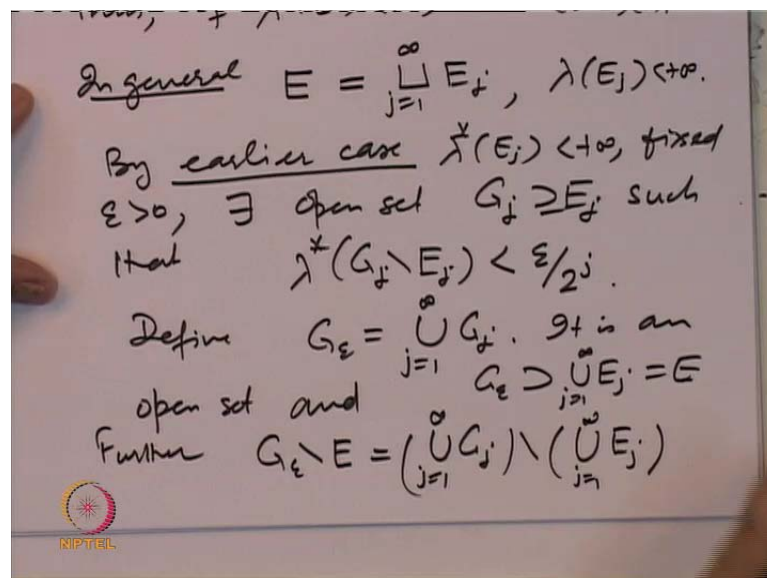 In general E = ⊔_{j=1}^{∞} E_j , λ(E_j) < +∞.
By earlier case λ*(E_j) < +∞, fixed
ε > 0, ∃ open set G_j ⊇ E_j such
that λ*(G_j \ E_j) < ε/2^j .
Define G_ε = ⋃_{j=1}^{∞} G_j . It is an
open set and G_ε ⊃ ⋃_{j=1}^{∞} E_j = E
Further G_ε \ E = (⋃_{j=1}^{∞} G_j) \ (⋃_{j=1}^{∞} E_j)
NPTEL